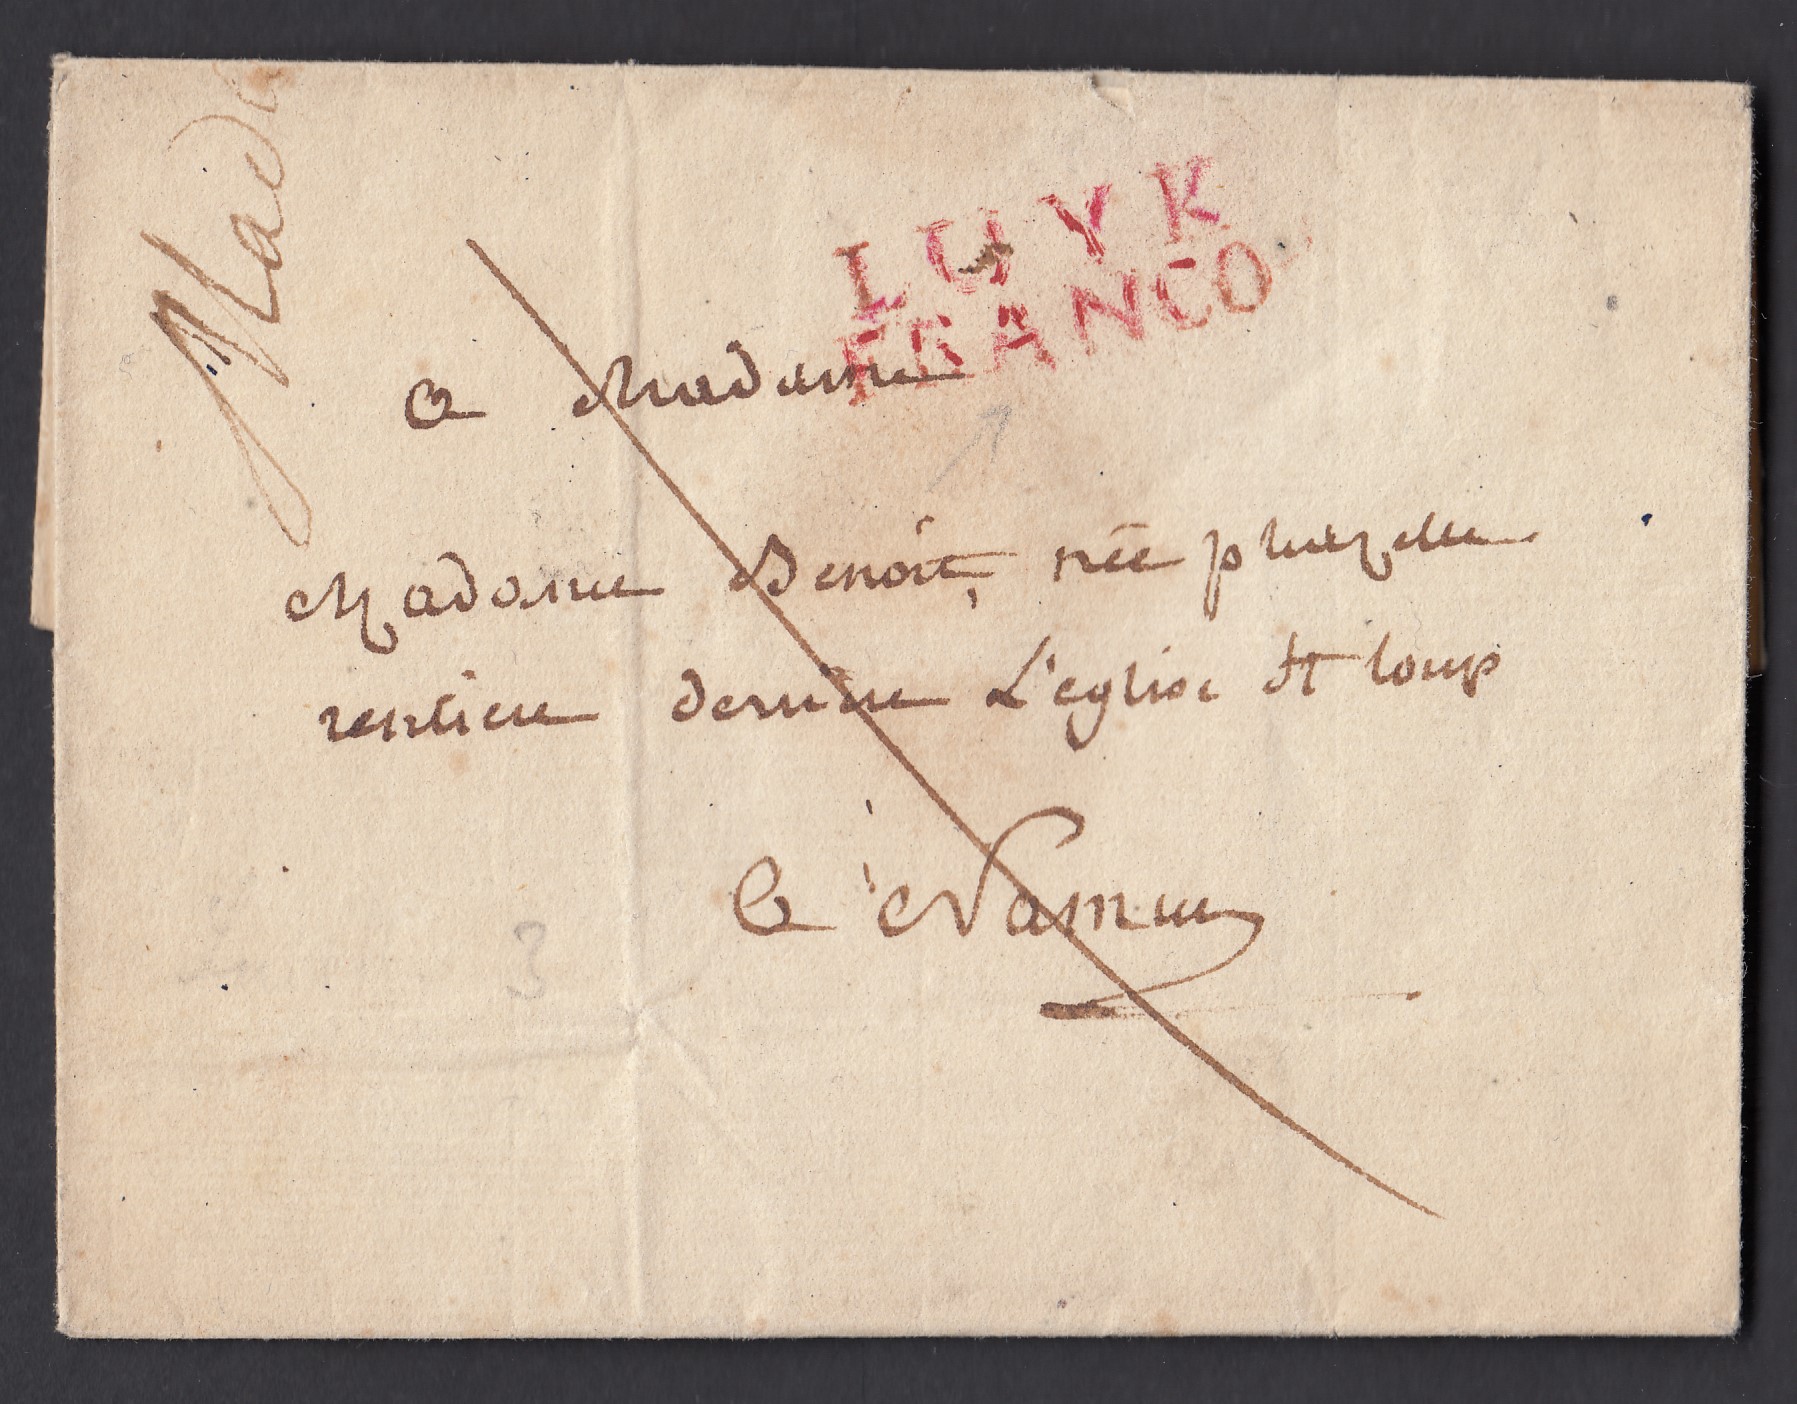 LUYK
FRANCO
Mad
a Madame
Madame Benoit, née
rentiere derriere L'eglise St loup
a Namur
3